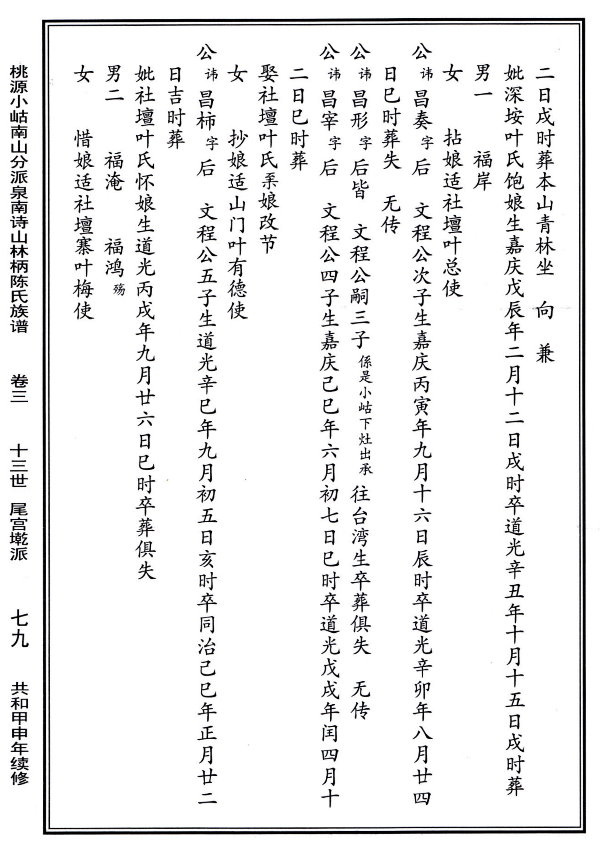 二日戌时葬本山青林坐　向　兼
妣深垵叶氏饱娘生嘉庆戊辰年二月十二日戌时卒道光辛丑年十月十五日戌时葬
男一　福岸
女　拈娘适社壇叶总使
公讳昌奏字后　文程公次子生嘉庆丙寅年九月十六日辰时卒道光辛卯年八月廿四
日巳时葬失　无传
公讳昌形字后皆　文程公嗣三子係是小岵下灶出承往台湾生卒葬俱失　无传
公讳昌宰字后　文程公四子生嘉庆己巳年六月初七日巳时卒道光戊戌年闰四月十
二日巳时葬
娶社壇叶氏系娘改节
女　抄娘适山门叶有德使
公讳昌柿字后　文程公五子生道光辛巳年九月初五日亥时卒同治己巳年正月廿二
日吉时葬
妣社壇叶氏怀娘生道光丙戌年九月廿六日巳时卒葬俱失
男二　福淹　福鸿殇
女　惜娘适社壇寨叶梅使
桃源小岵南山分派泉南诗山林柄陈氏族谱　卷三　十三世　尾宫墘派　七九　共和甲申年续修